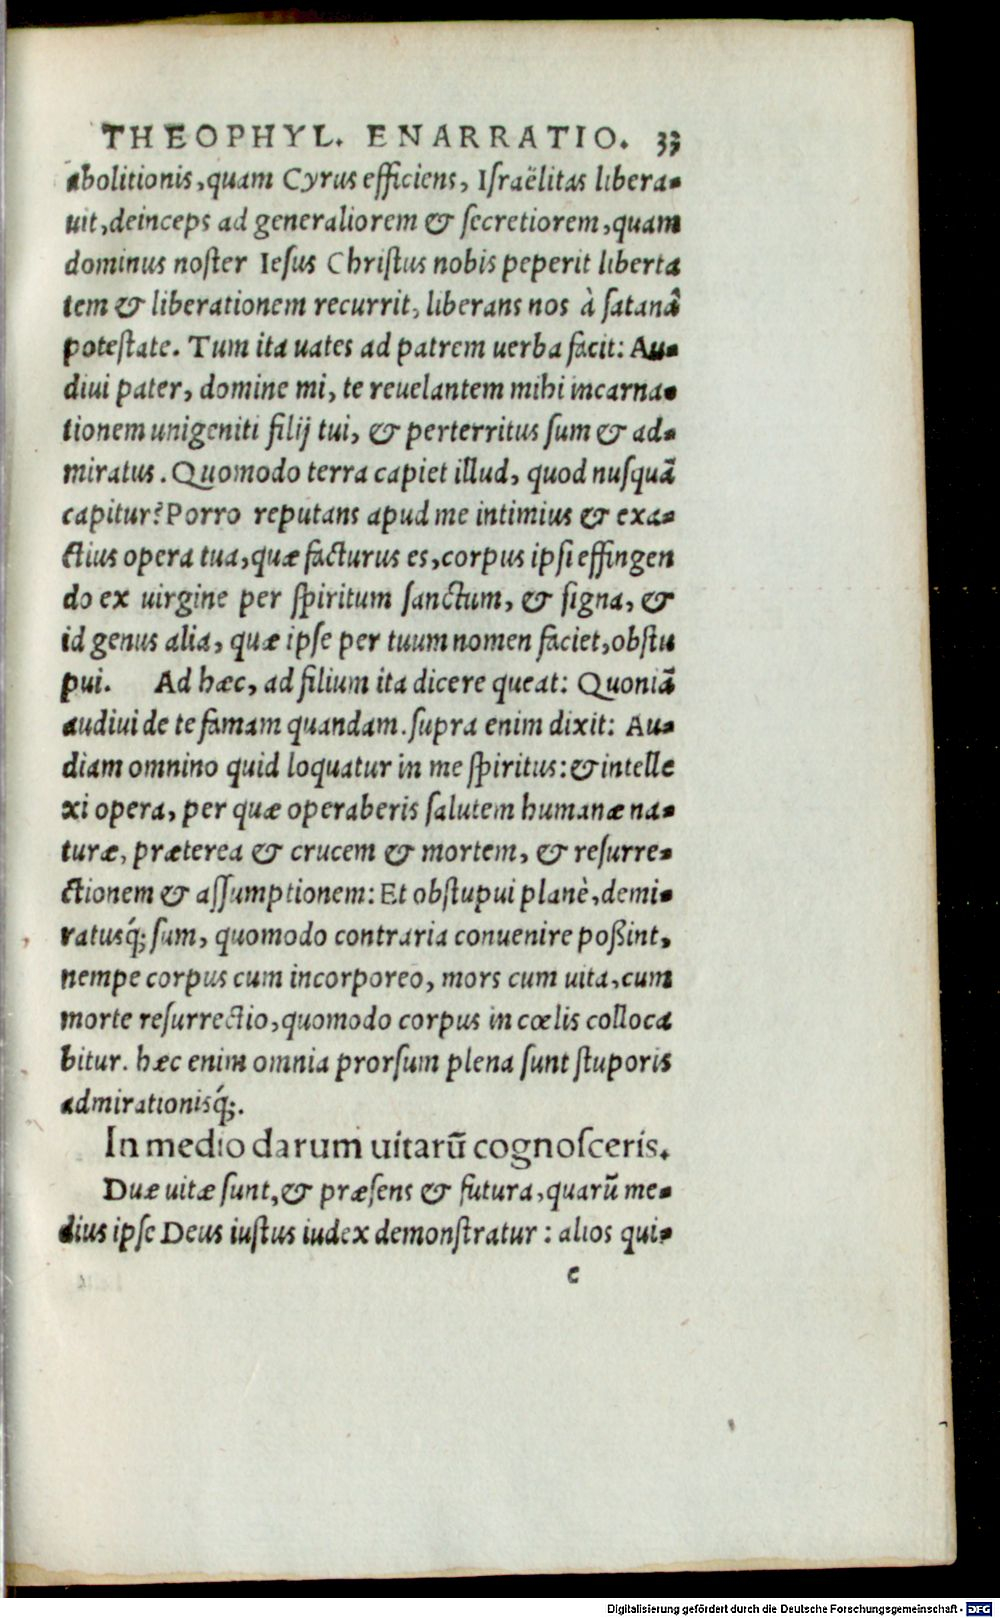 THEOPHYL. ENARRATIO. 33
abolitionis, quam Cyrus efficiens, Iſraëlitas libera-
uit, deinceps ad generaliorem & ſecretiorem, quam
dominus noſter Ieſus Chriſtus nobis peperit liberta
tem & liberationem recurrit, liberans nos à ſatanâ
poteſtate. Tum ita uates ad patrem uerba facit: Au-
diui pater, domine mi, te reuelantem mihi incarna-
tionem unigeniti filij tui, & perterritus ſum & ad-
miratus. Quomodo terra capiet illud, quod nuſquã
capitur? Porro reputans apud me intimius & exa-
ctius opera tua, quæ facturus es, corpus ipſi effingen
do ex uirgine per ſpiritum ſanctum, & ſigna, &
id genus alia, quæ ipſe per tuum nomen faciet, obſtu
pui. Ad hæc, ad filium ita dicere queat: Quoniã
audiui de te famam quandam. ſupra enim dixit: Au-
diam omnino quid loquatur in me ſpiritus: & intelle
xi opera, per quæ operaberis ſalutem humanæ na-
turæ, præterea & crucem & mortem, & reſurre-
ctionem & aſſumptionem: Et obſtupui planè, demi-
ratusq́; ſum, quomodo contraria conuenire poßint,
nempe corpus cum incorporeo, mors cum uita, cum
morte reſurrectio, quomodo corpus in cœlis colloca
bitur. hæc enim omnia prorſum plena ſunt ſtuporis
admirationisq́;.
In medio darum uitarũ cognoſceris.
Duæ uitæ ſunt, & præſens & futura, quarũ me-
dius ipſe Deus iuſtus iudex demonſtratur: alios qui-
c
Digitalisierung gefördert durch die Deutsche Forschungsgemeinschaft - DFG